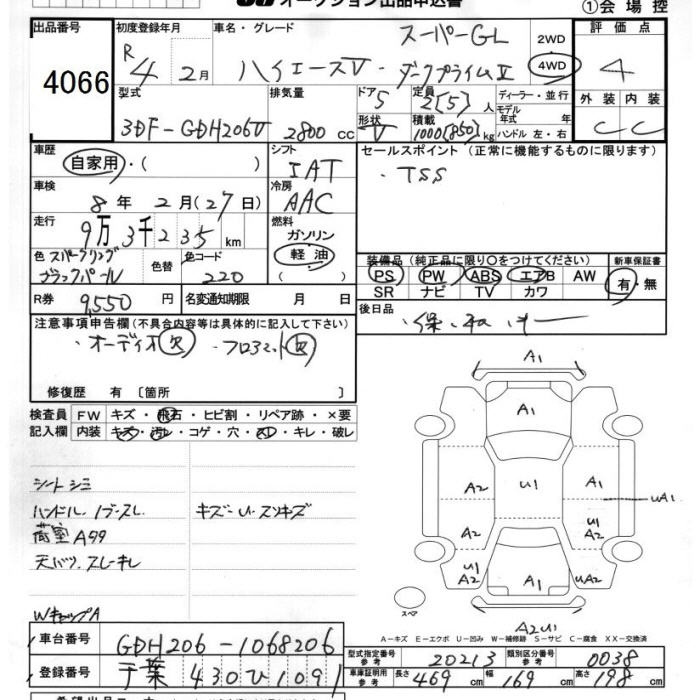 オークション出品申込書 ①会場控
出品番号 初度登録年月 車名・グレード 評価点
4066 R4 2月 ハイエースV・ スーパーGL ダークプライムⅡ 2WD 4WD 4
型式 排気量 ドア 定員 ディーラー・並行 外装 内装
3DF-GDH206V 2800cc 5 2[5]人 モデル年式 年式 C C
形状 V 積載 1000[850]kg ハンドル 左・右
車歴 シフト セールスポイント (正常に機能するものに限ります)
自家用・( ) IAT ・TSS
車検 冷房
8年 2月(27日) AAC
走行 燃料
9万3千235km ガソリン
色 スパークリングブラックパール 色替 色コード 220 軽油
( )
装備品(純正品に限り○をつけてください) 新車保証書
PS PW ABS エアB AW 有・無
SR ナビ TV カワ
R券 9,550円 名変通知期限 月 日
後日品
・保・取・
注意事項申告欄(不具合内容等は具体的に記入して下さい)
・オーディオ欠 ・フロアマット欠
修復歴 有 〔箇所 〕
検査員 FW キズ・飛石・ヒビ割・リペア跡・×要
記入欄 内装 キズ・汚レ・コゲ・穴・スレ・キレ・破レ
A1
A1
A2 U1 A1 UA1
A2 U1 A2
U1 A2 A1 UA2
スペア
A2U1
シートシミ
ハンドル
キズ・U・スリキズ
荷室Aキキ
WキャップA
A-キズ E-エクボ U-凹み W-補修跡 S-サビ C-腐食 XX-交換済
車台番号 GDH206-1068206
登録番号 千葉 430ひ1091
型式指定番号 参考 20213 類別区分番号 参考 0038
車庫証明用 参考 長さ 469cm 幅 169cm 高さ 198cm
希望出品コーナー